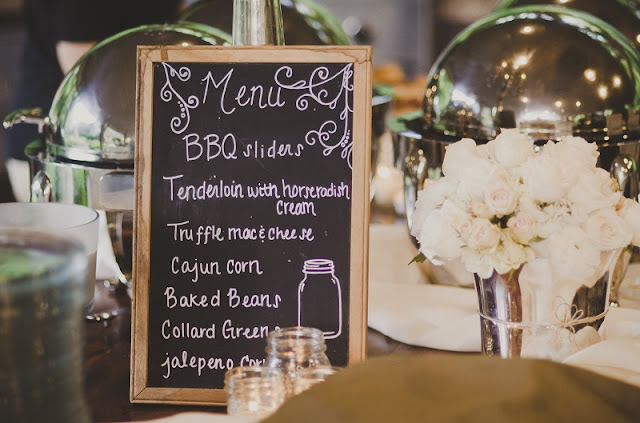 Menu
BBQ sliders
Tenderloin with horseradish
cream
Truffle mac & cheese
Cajun corn
Baked Beans
Collard Greens
jalepeno